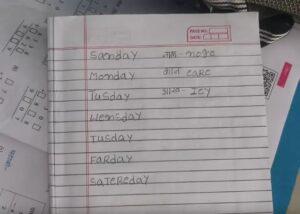 PAGE NO.:
DATE:
Sanday नाक - noge
Monday कान - eare
Tusday आख - Iey
Wensday
Tusday
Farday
Satereday